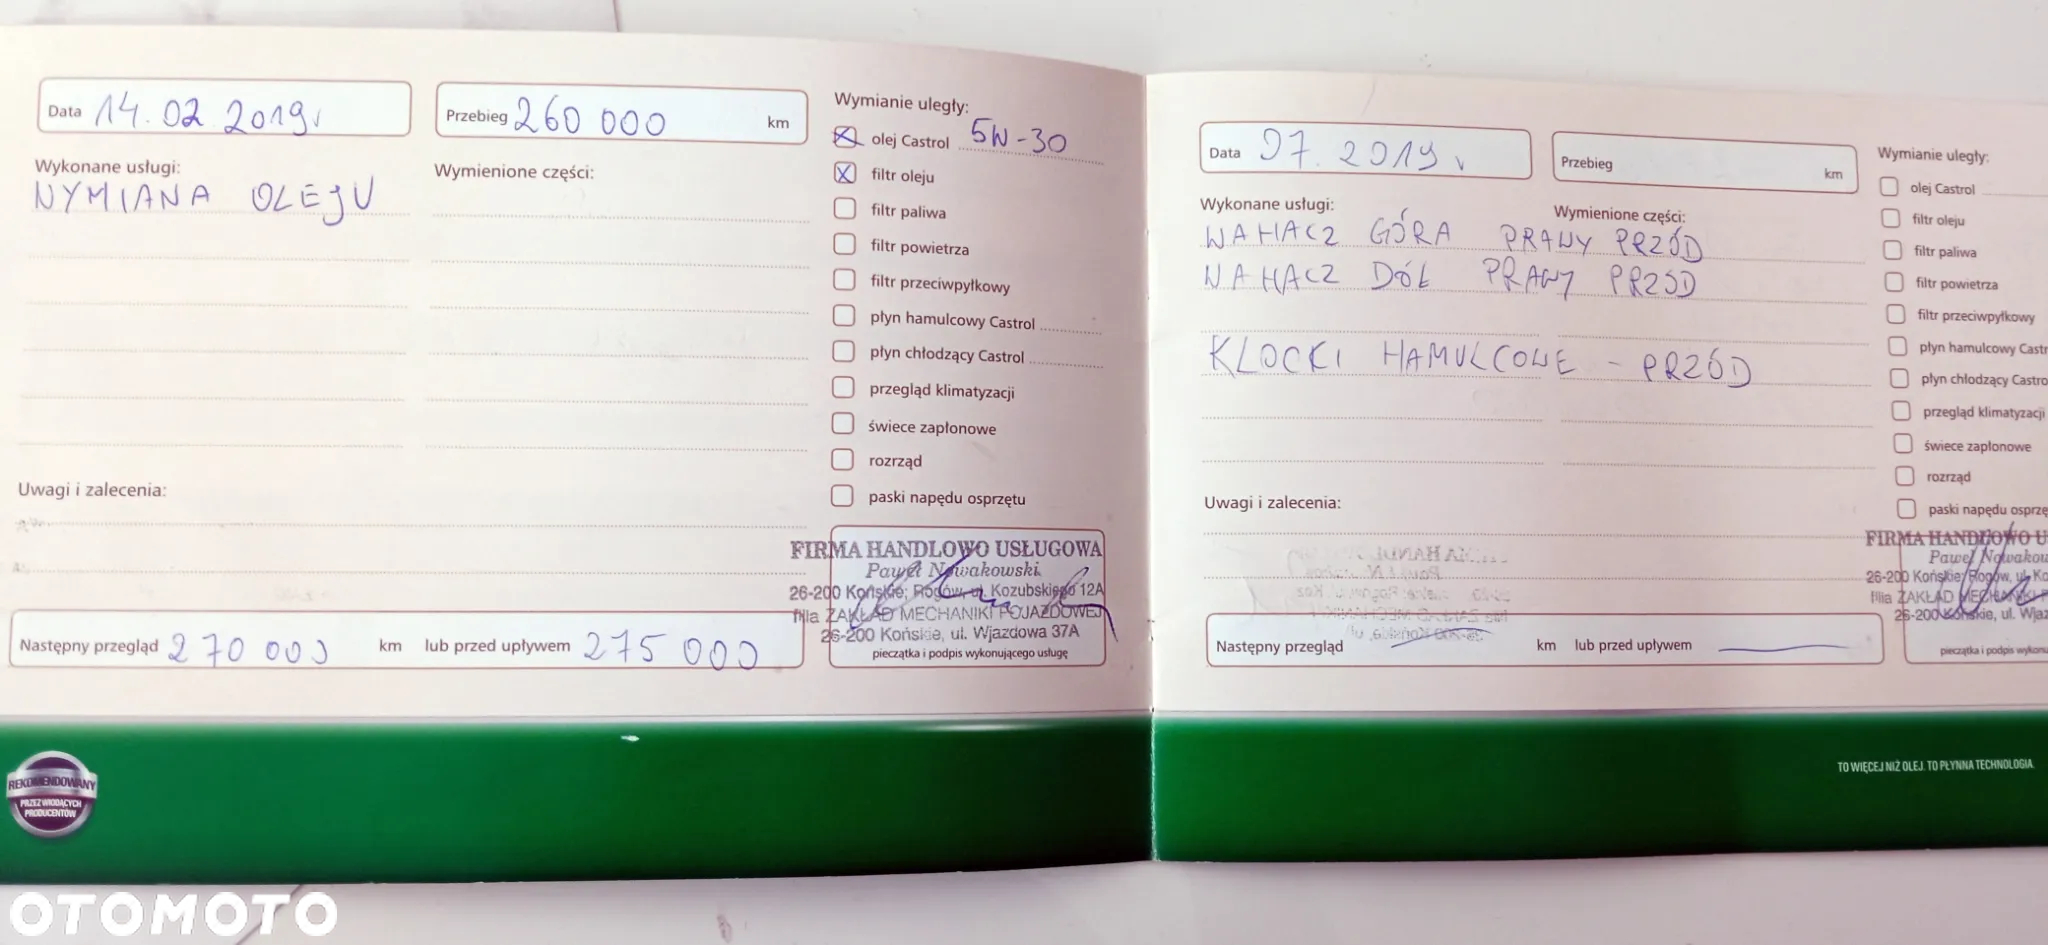 Data 14.02.2019r
Przebieg 260 000 km
Wykonane usługi:
WYMIANA OLEJU
Wymienione części:
Wymianie uległy:
olej Castrol 5W-30
filtr oleju
filtr paliwa
filtr powietrza
filtr przeciwpyłkowy
płyn hamulcowy Castrol
płyn chłodzący Castrol
przegląd klimatyzacji
świece zapłonowe
rozrząd
paski napędu osprzętu
Uwagi i zalecenia:
FIRMA HANDLOWO USŁUGOWA
Paweł Nowakowski
26-200 Końskie; Rogów, ul. Kozubskiego 12A
filia ZAKŁAD MECHANIKI POJAZDOWEJ
26-200 Końskie, ul. Wjazdowa 37A
pieczątka i podpis wykonującego usługę
Następny przegląd 270 000 km lub przed upływem 275 000
REKOMENDOWANY
PRZEZ WIODĄCYCH
PRODUCENTÓW
Data 07.2019r
Przebieg km
Wykonane usługi:
Wymienione części:
WAHACZ GÓRA PRAWY PRZÓD
WAHACZ DÓŁ PRAWY PRZÓD
KLOCKI HAMULCOWE - PRZÓD
Wymianie uległy:
olej Castrol
filtr oleju
filtr paliwa
filtr powietrza
filtr przeciwpyłkowy
płyn hamulcowy Castr
płyn chłodzący Castro
przegląd klimatyzacji
świece zapłonowe
rozrząd
paski napędu osprzę
Uwagi i zalecenia:
FIRMA HANDLOWO U
Paweł Nowakow
26-200 Końskie; Rogów, ul. Ko
filia ZAKŁAD MECHANIKI P
26-200 Końskie, ul. Wjaz
pieczątka i podpis wykonu
Następny przegląd km lub przed upływem
TO WIĘCEJ NIŻ OLEJ. TO PŁYNNA TECHNOLOGIA.
OTOMOTO